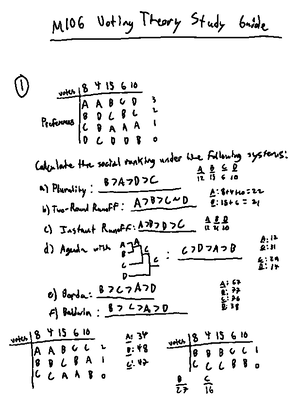 M106 Voting Theory Study Guide
①
votes 8 4 15 6 10
A A B C D 3
Preferences B D C B C 2
C B A A A 1
D C D D B 0
Calculate the social ranking under the following systems:
A B C D
12 15 6 10
a) Plurality: B>A>D>C
A: 8+4+10=22
b) Two-Round Runoff: A>B>C~D
B: 15+6=21
c) Instant Runoff: A>B>D>C
A B D
12 21 10
d) Agenda with A B C D : C>D>A>B
e) Borda: B>C>A>D
f) Baldwin: B>C>A>D
votes 8 4 15 6 10
A A B C C 2
B B C B A 1
C C A A B 0
A: 34
B: 48
C: 47
votes 8 4 15 6 10
B B B C C 1
C C C B B 0
B C
27 16